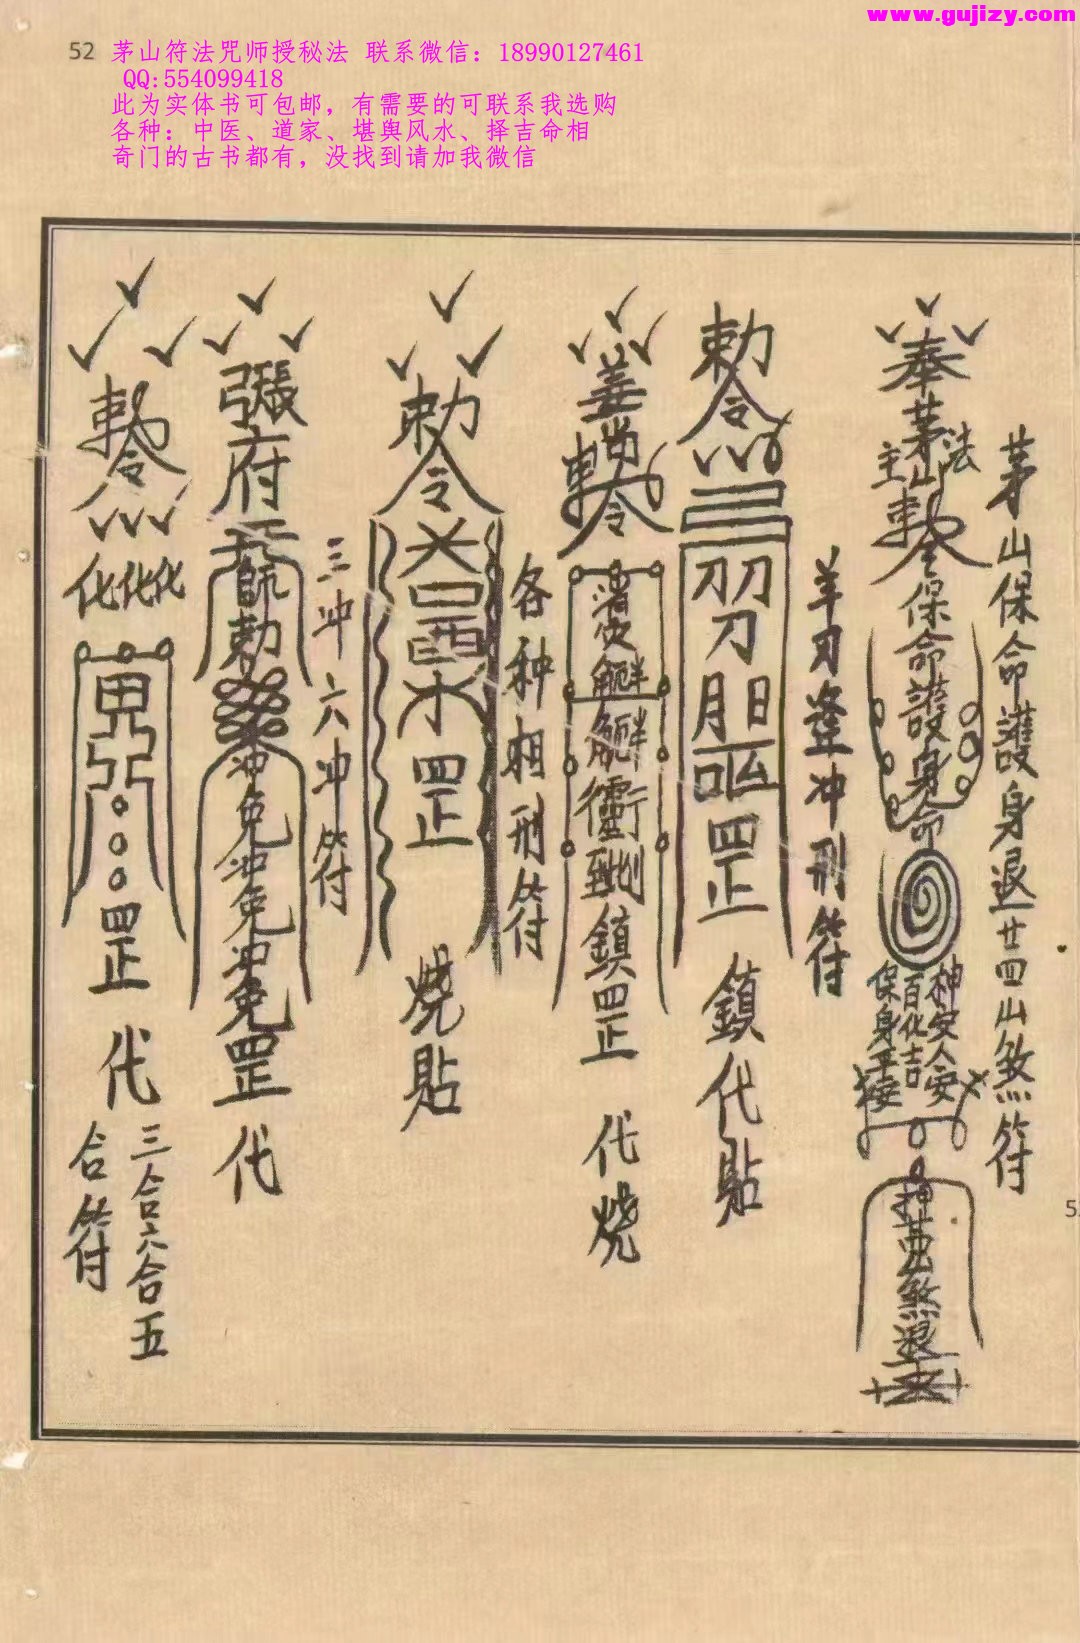 www.gujizy.com
52 茅山符法咒师授秘法 联系微信：18990127461
QQ:554099418
此为实体书可包邮，有需要的可联系我选购
各种：中医、道家、堪舆风水、择吉命相
奇门的古书都有，没找到请加我微信
茅山保命護身退廿四山煞符
奉茅山法主敕令保命護身命
神安人安
百化吉
保身平安
煞退
羊刃逢冲刑符
敕令
刀刀刀
月日
罡
鎮代貼
姜
敕令
鎮罡
代烧
各种相刑符
敕令
罡
烧貼
三冲六冲符
張府天師敕
冲免冲免冲免罡
代
敕令
化化化
罡
代
三合六合五合符